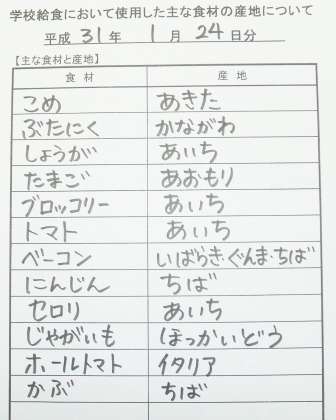 学校給食において使用した主な食材の産地について
平成 31 年 1 月 24 日分
【主な食材と産地】
食 材 産 地
こめ あきた
ぶたにく かながわ
しょうが あいち
たまご あおもり
ブロッコリー あいち
トマト あいち
ベーコン いばらき・ぐんま・ちば
にんじん ちば
セロリ あいち
じゃがいも ほっかいどう
ホールトマト イタリア
かぶ ちば